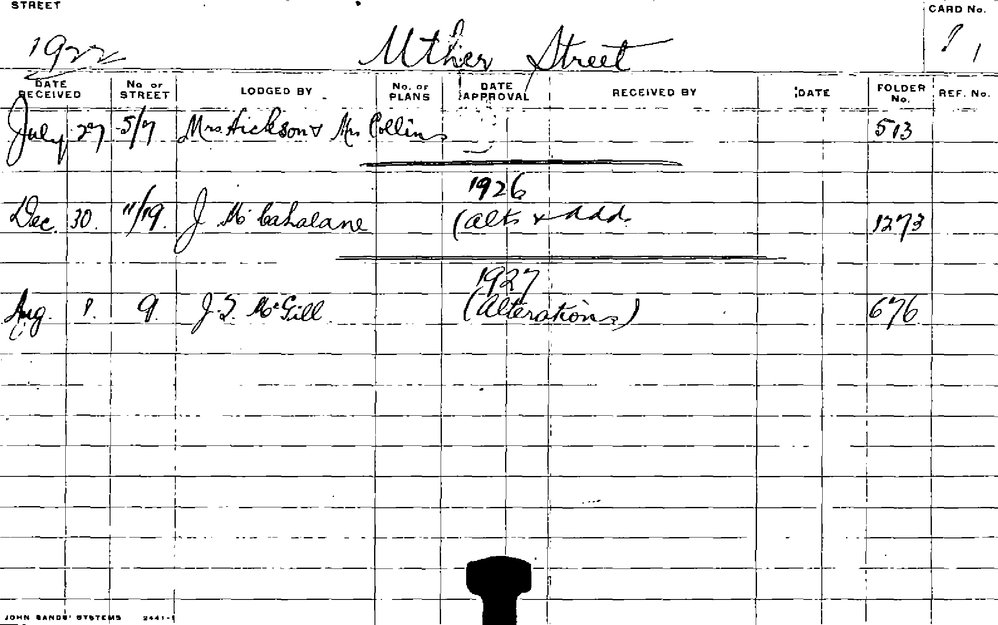 STREET CARD No.
1922 Uther Street 1
DATE RECEIVED No of STREET LODGED BY No. of PLANS DATE APPROVAL RECEIVED BY DATE FOLDER No. REF. No.
July 27 5/7 Mrs Hickson & Mrs Collins 513
1926
Dec. 30. 11/19. J Mc Cahalane (Alts & Add. 1273
1927
Aug 8. 9. J.S. McGill. (Alterations) 676
JOHN SANDS' SYSTEMS 2441-1